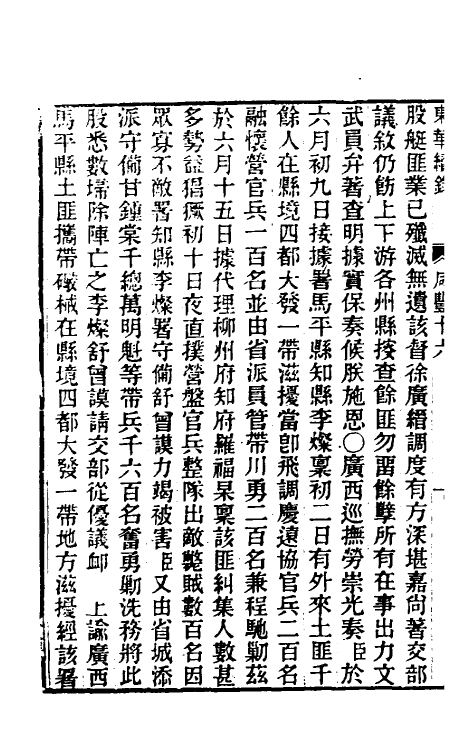 東華續錄 咸豐十六 一
股艇匪業已殲滅無遺該督徐廣縉調度有方深堪嘉尚著交部
議敘仍飭上下游各州縣按查餘匪勿畱餘孽所有在事出力文
武員弁著查明據實保奏候朕施恩〇廣西巡撫勞崇光奏臣於
六月初九日接據署馬平縣知縣李燦稟初二日有外來土匪千
餘人在縣境四都大發一帶滋擾當卽飛調慶遠協官兵二百名
融懷營官兵一百名並由省派員管帶川勇二百名兼程馳勦茲
於六月十五日據代理柳州府知府羅福杲稟該匪糾集人數甚
多勢益猖獗初十日夜直撲營盤官兵整隊出敵斃賊數百名因
眾寡不敵署知縣李燦署守備舒曾謨力竭被害臣又由省城添
派守備甘鍾棠千總萬明魁等帶兵千六百名奮勇勦洗務將此
股悉數埽除陣亡之李燦舒曾謨請交部從優議卹 上諭廣西
馬平縣土匪攜帶礮械在縣境四都大發一帶地方滋擾經該署